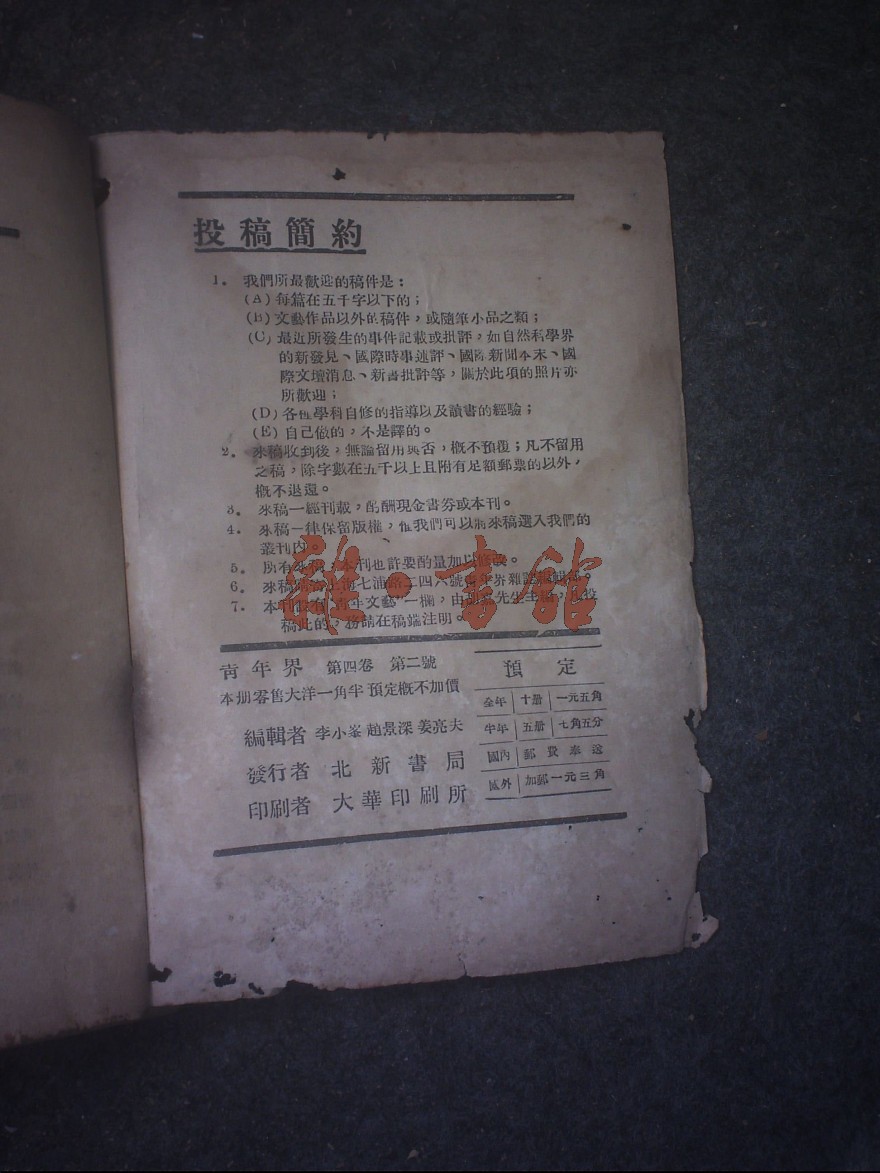 投稿簡約
1. 我們所最歡迎的稿件是：
(A) 每篇在五千字以下的；
(B) 文藝作品以外的稿件，或隨筆小品之類；
(C) 最近所發生的事件記載或批評，如自然科學界
的新發見、國際時事述評、國際新聞本末、國
際文壇消息、新書批評等，關於此項的照片亦
所歡迎；
(D) 各種學科自修的指導以及讀書的經驗；
(E) 自己做的，不是譯的。
2. 來稿收到後，無論留用與否，概不預復；凡不留用
之稿，除字數在五千以上且附有足額郵票的以外，
概不退還。
3. 來稿一經刊載，酌酬現金書券或本刊。
4. 來稿一律保留版權，惟我們可以將來稿選入我們的
叢刊內。
5. 所有來稿，本刊也許要酌量加以修改。
6. 來稿請寄上海七浦路二四六號青年界雜誌編輯部。
7. 本刊設有“青年文藝”一欄，由 先生主編，凡投
稿此的，務請在稿端注明。
雜·書館
青年界 第四卷 第二號
本册零售大洋一角半 預定概不加價
編輯者 李小峯 趙景深 姜亮夫
發行者 北新書局
印刷者 大華印刷所
預定
全年 十册 一元五角
半年 五册 七角五分
國內 郵費奉送
國外 加郵一元三角